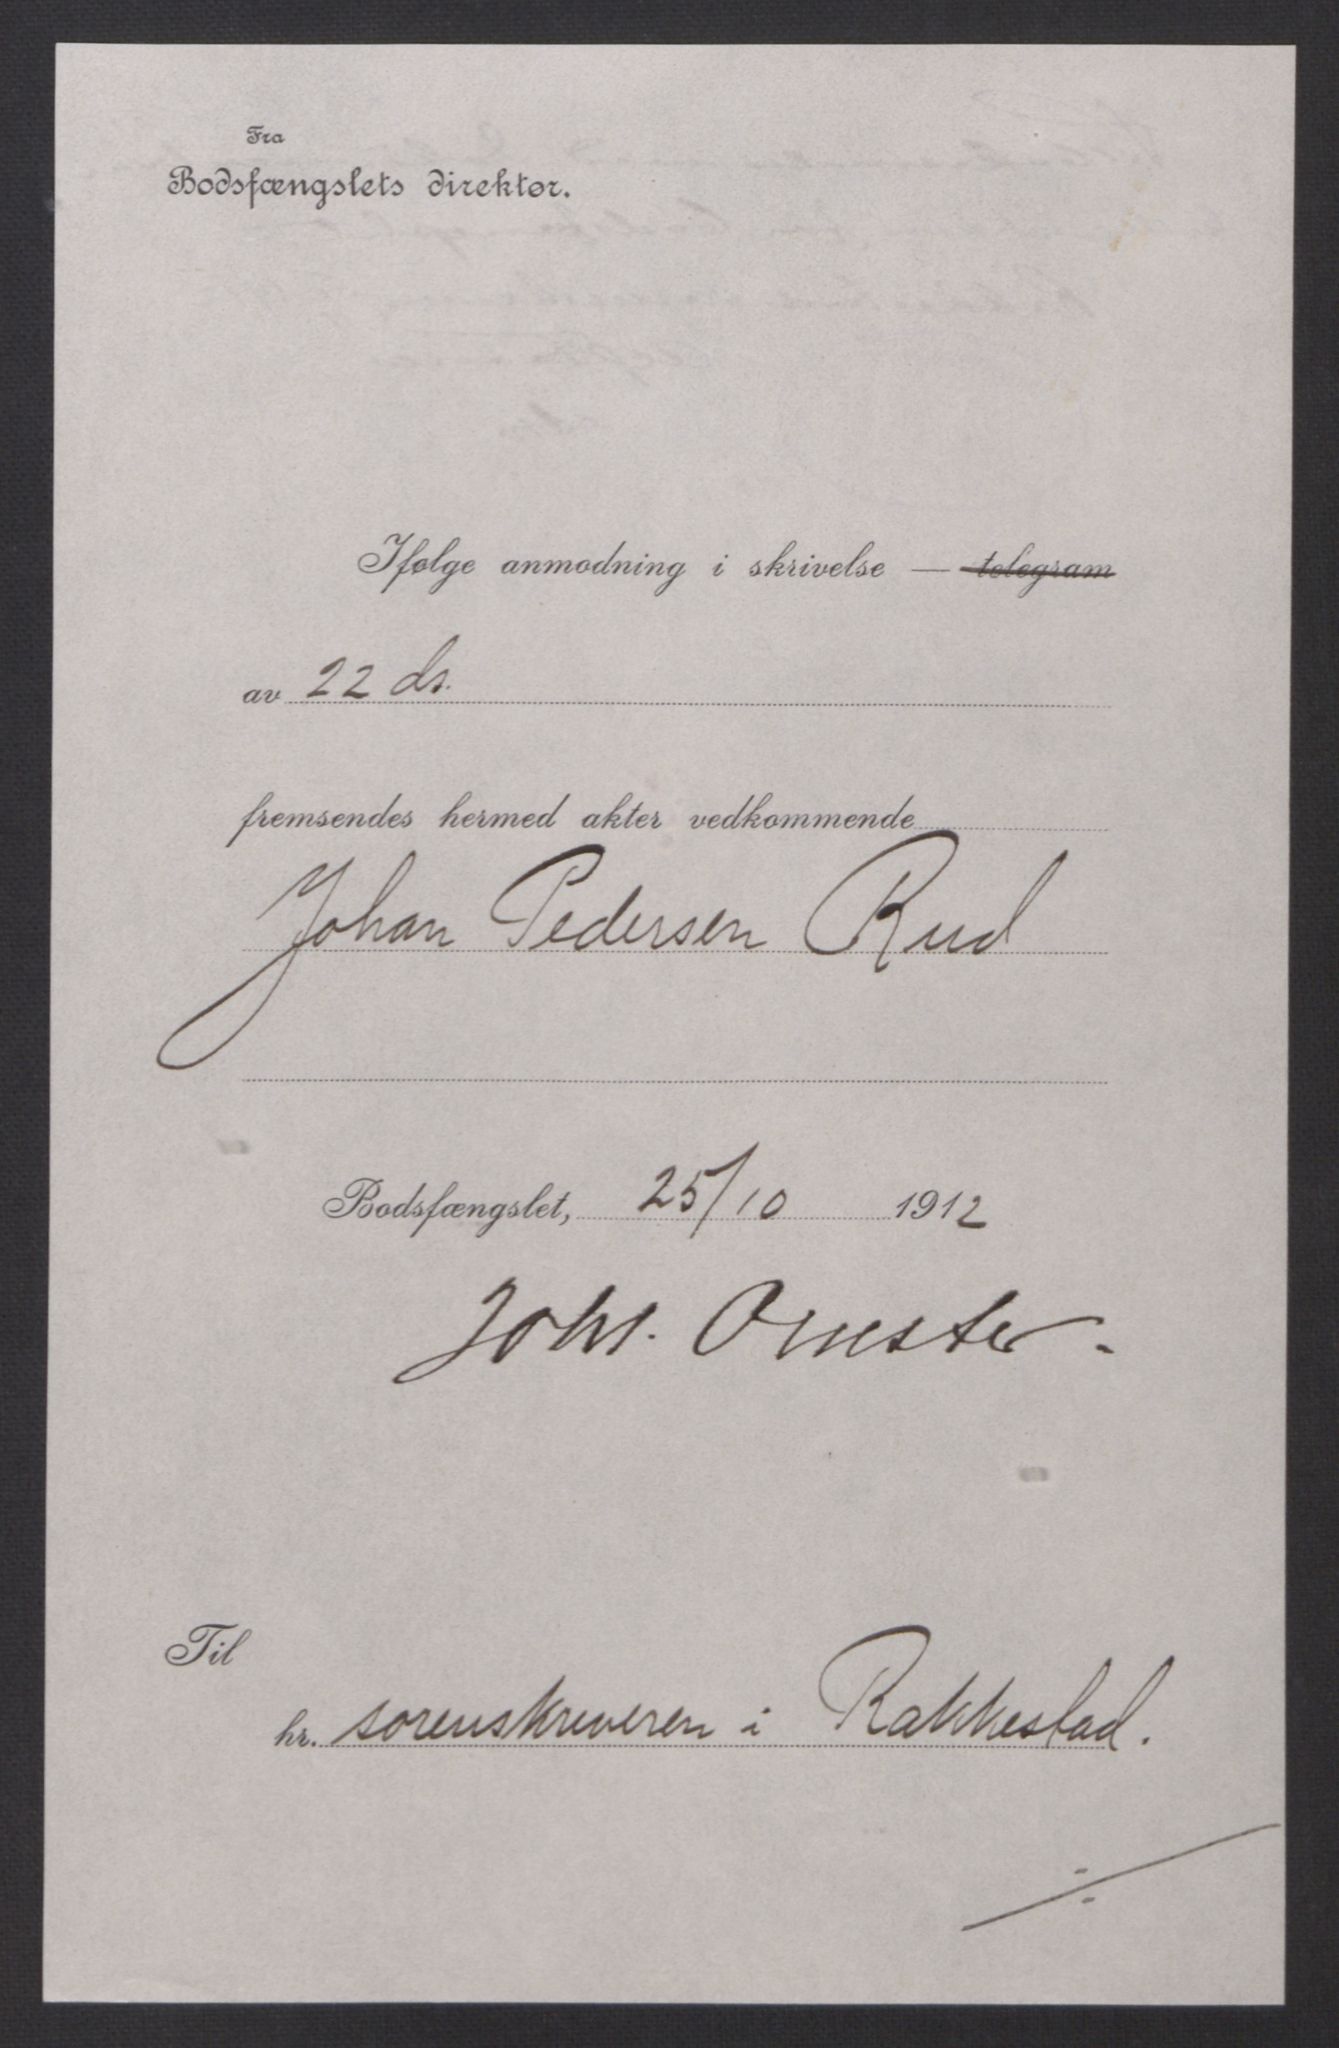 Fra
Bodsfængslets direktør.
Ifølge anmodning i skrivelse — telegram
av 22 ds.
fremsendes hermed akter vedkommende
Johan Pedersen Rud
Bodsfængslet, 25/10 1912
Johs.
Til
hr. sorenskriveren i Rakkestad.